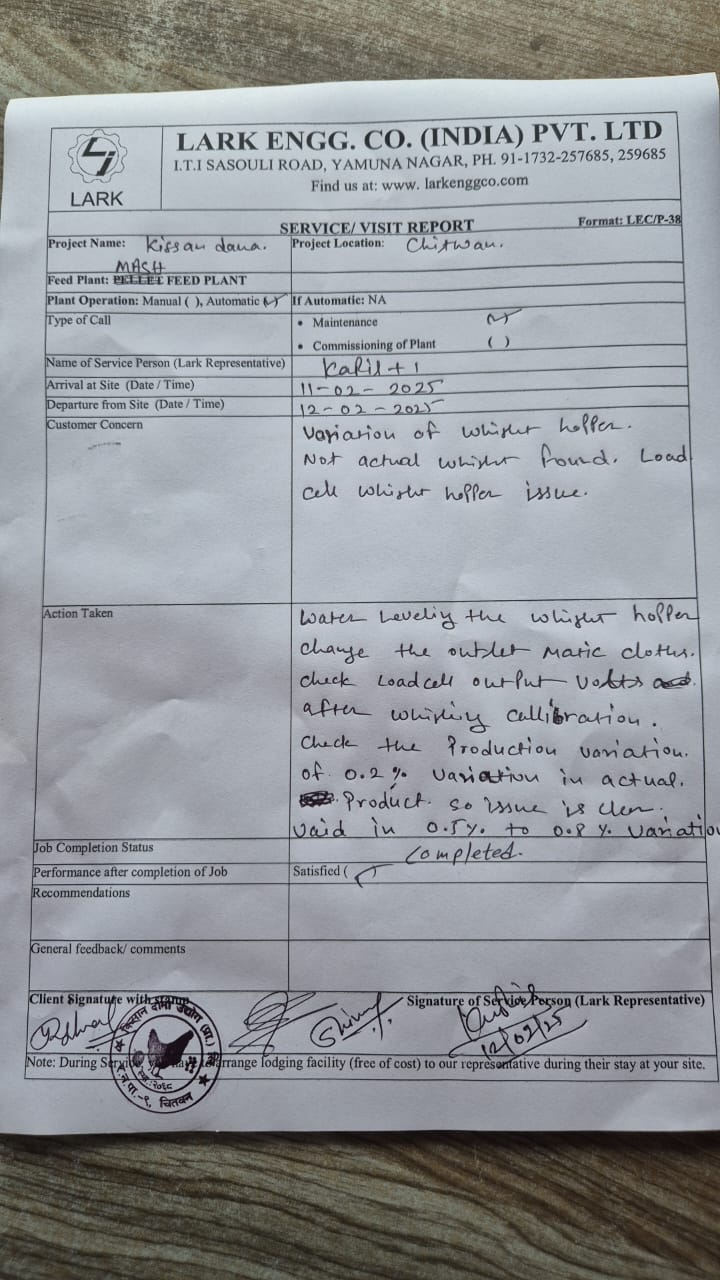 LARK
LARK ENGG. CO. (INDIA) PVT. LTD
I.T.I SASOULI ROAD, YAMUNA NAGAR, PH. 91-1732-257685, 259685
Find us at: www. larkenggco.com
SERVICE/ VISIT REPORT
Format: LEC/P-38
Project Name: Kissan dana.
Project Location: Chitwan.
MASH
Feed Plant: PELLET FEED PLANT
Plant Operation: Manual ( ), Automatic (✓)
If Automatic: NA
Type of Call
• Maintenance (✓)
• Commissioning of Plant ( )
Name of Service Person (Lark Representative) Kapil + 1
Arrival at Site (Date / Time) 11-02-2025
Departure from Site (Date / Time) 12-02-2025
Customer Concern
Variation of whight hopper.
Not actual whight found. Load
cell whight hopper issue.
Action Taken
Water Leveling the whight hopper
change the outlet Matic cloths.
check Loadcell output Volts
after whighing callibration.
Check the Production variation.
of 0.2% variation in actual.
Product. so issue is clear.
Vaid in 0.5% to 0.8% variatio
Job Completion Status Completed.
Performance after completion of Job Satisfied (✓
Recommendations
General feedback/ comments
Client Signature with stamp
Signature of Service Person (Lark Representative)
12/02/25
किसान दाना उद्योग (प्रा.) लि.
स्था.: २०६८
न.पा.-९, चितवन
Note: During Servi arrange lodging facility (free of cost) to our representative during their stay at your site.